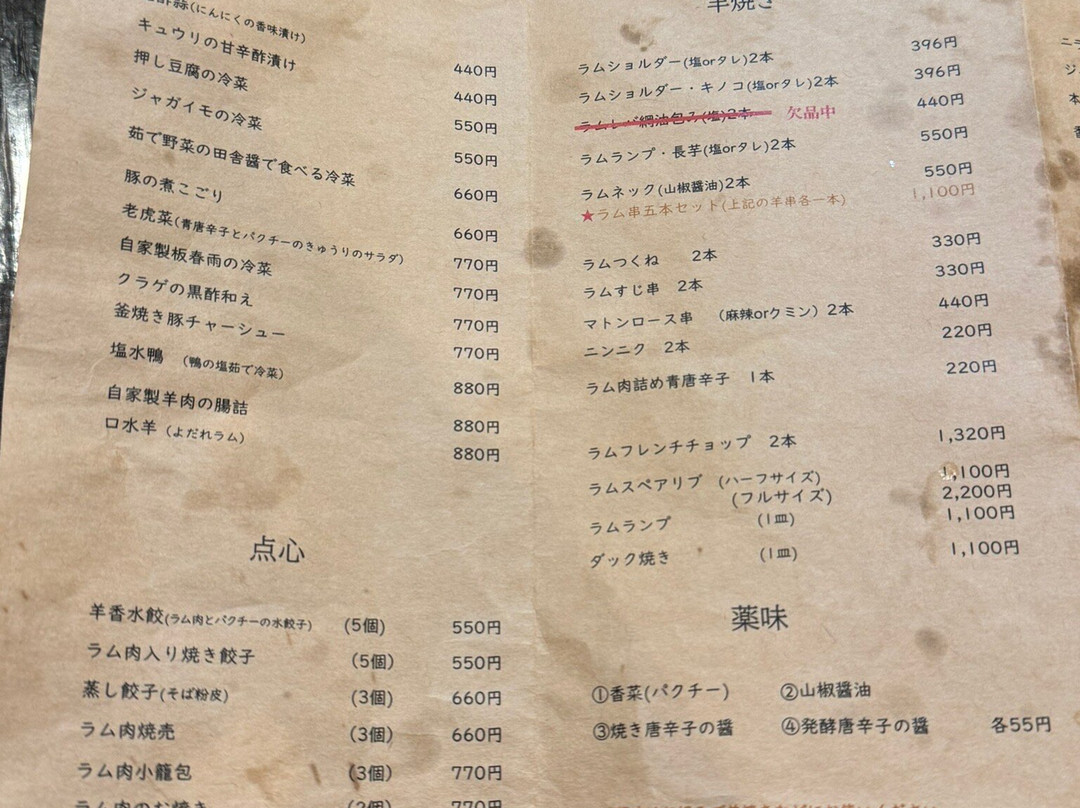 (にんにくの香味漬け) 440円
キュウリの甘辛酢漬け 440円
押し豆腐の冷菜 550円
ジャガイモの冷菜 550円
茹で野菜の田舎醤で食べる冷菜 660円
豚の煮こごり 660円
老虎菜(青唐辛子とパクチーのきゅうりのサラダ) 770円
自家製板春雨の冷菜 770円
クラゲの黒酢和え 770円
釜焼き豚チャーシュー 770円
塩水鴨 (鴨の塩茹で冷菜) 880円
自家製羊肉の腸詰 880円
口水羊 (よだれラム) 880円
点心
羊香水餃(ラム肉とパクチーの水餃子) (5個) 550円
ラム肉入り焼き餃子 (5個) 550円
蒸し餃子(そば粉皮) (3個) 660円
ラム肉焼売 (3個) 660円
ラム肉小籠包 (3個) 770円
ラム肉のお焼き 770円
羊焼き
ラムショルダー(塩orタレ)2本 396円
ラムショルダー・キノコ(塩orタレ)2本 396円
ラムレバ網油包み(塩)2本 欠品中 440円
ラムランプ・長芋(塩orタレ)2本 550円
ラムネック(山椒醤油)2本 550円
★ラム串五本セット(上記の羊串各一本) 1,100円
ラムつくね 2本 330円
ラムすじ串 2本 330円
マトンロース串 (麻辣orクミン) 2本 440円
ニンニク 2本 220円
ラム肉詰め青唐辛子 1本 220円
ラムフレンチチョップ 2本 1,320円
ラムスペアリブ (ハーフサイズ) 1,100円
(フルサイズ) 2,200円
ラムランプ (1皿) 1,100円
ダック焼き (1皿) 1,100円
薬味
①香菜(パクチー) ②山椒醤油
③焼き唐辛子の醤 ④発酵唐辛子の醤 各55円